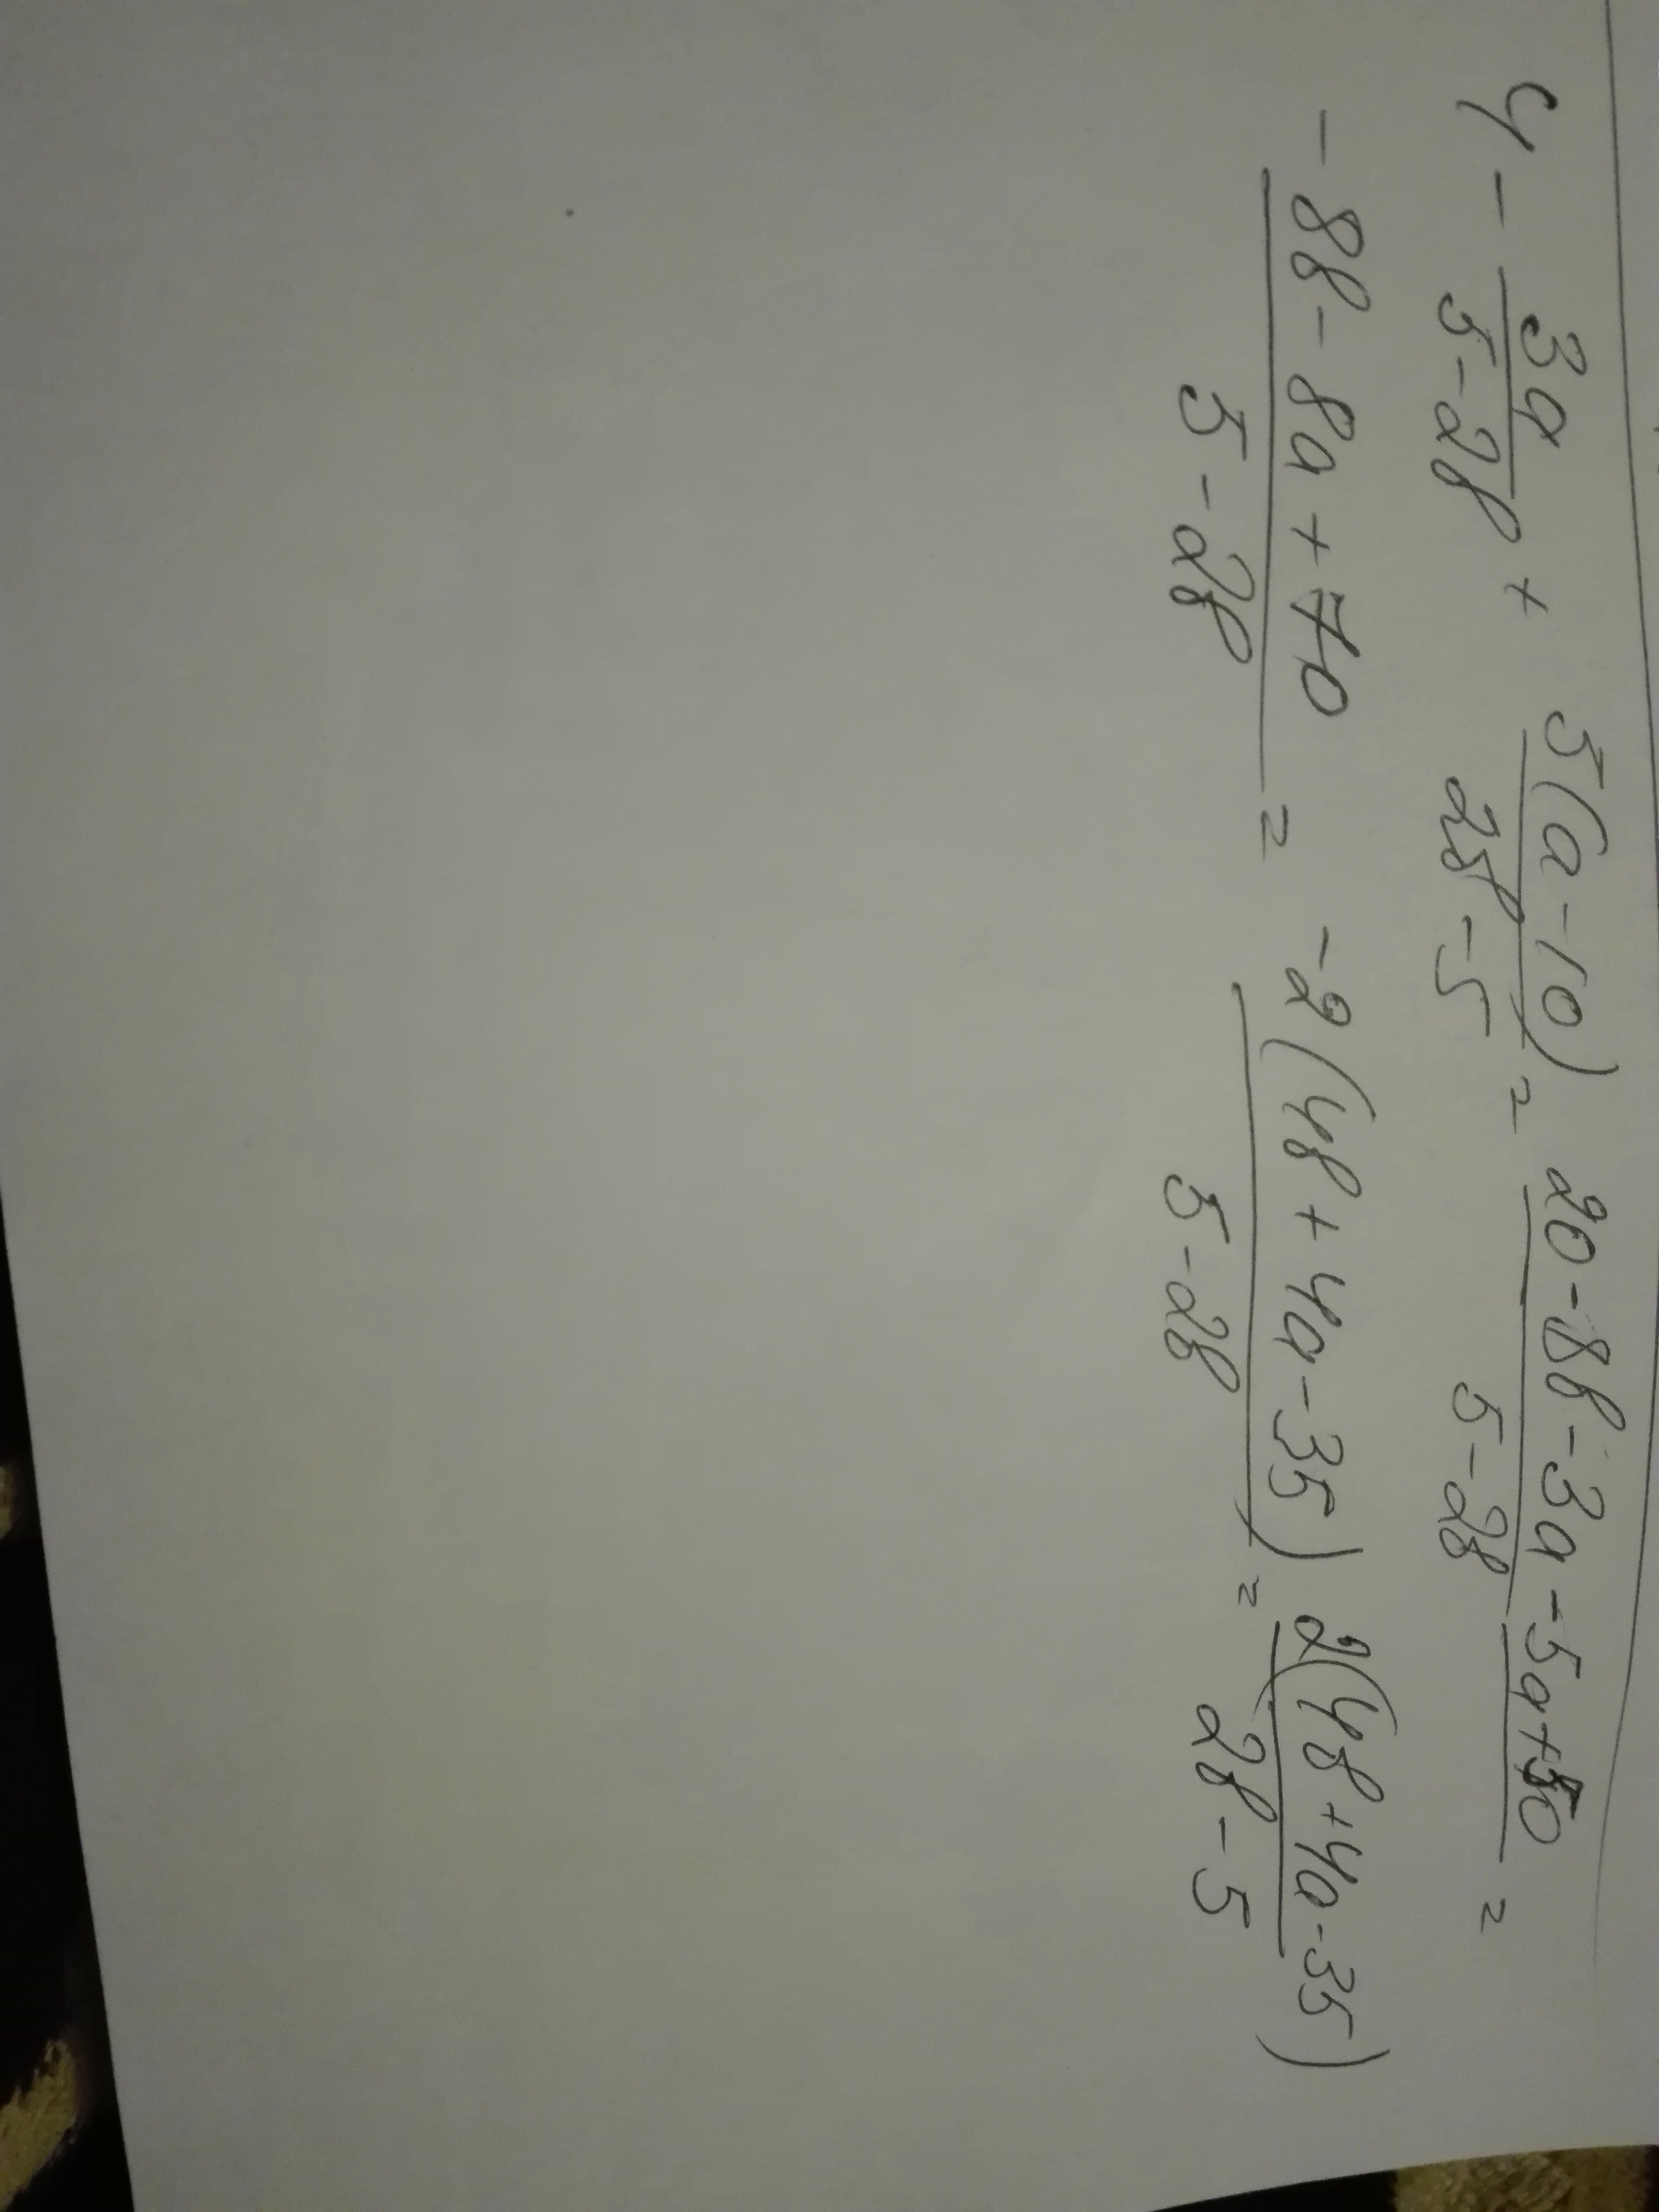 4 - 3a/(5-2b) + 5(a-10)/(2b-5) = (20-8b-3a-5a+50)/(5-2b) =
(-8b-8a+70)/(5-2b) = -2(4b+4a-35)/(5-2b) = 2(4b+4a-35)/(2b-5)